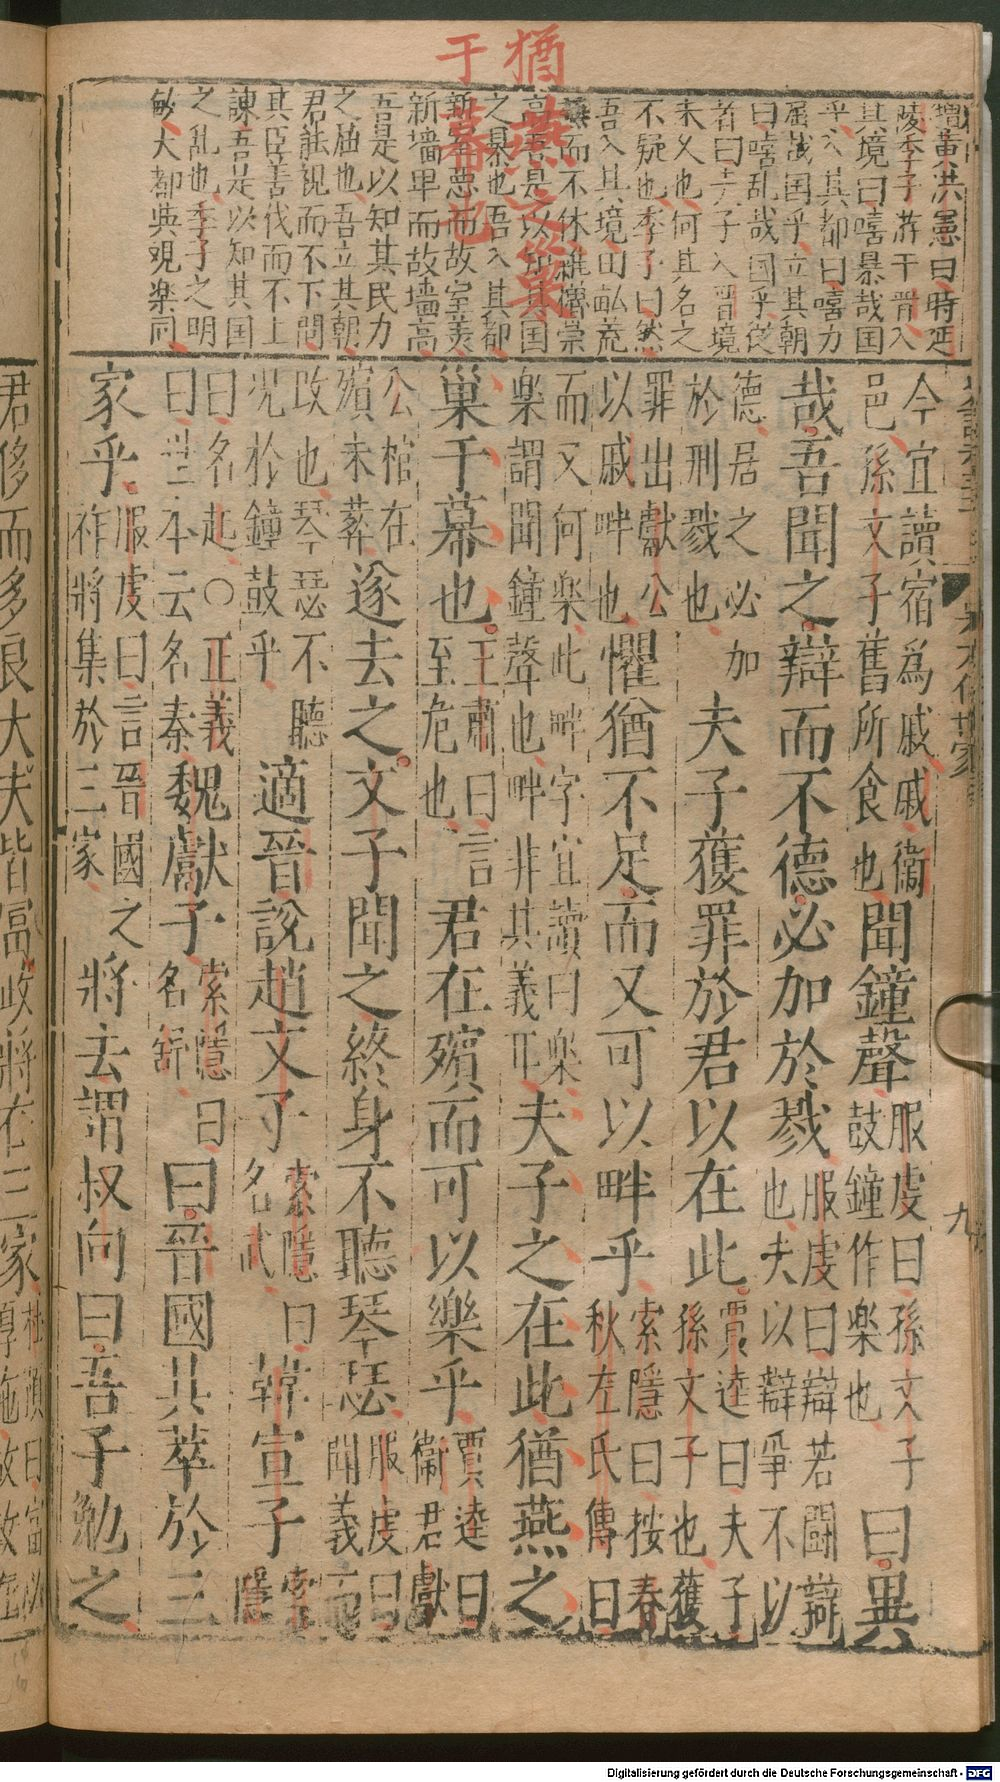 猶燕之巢
于幕也
增黃洪憲曰時延
陵季子游于晋入
其境曰嘻暴哉国
乎入其都曰嘻力
屈哉国乎立其朝
曰嘻乱哉國乎從
者曰夫子入晋境
未久也何其名之
不疑也季子曰然
吾入其境田畝荒
而不休雜增崇
高吾是以知其国
之暴也吾入其都
新室惡而故室美
新墻卑而故墻高
吾是以知其民力
之屈也吾立其朝
君能視而不下問
其臣善伐而不上
諫吾是以知其国
之乱也季子之明
敏大都與觀楽同
今宜讀宿爲戚戚衞
邑孫文子舊所食也
聞鐘聲
服虔曰孫文子
鼓鐘作楽也
曰異
哉吾聞之辯而不德必加於戮
服虔曰辯若鬪辯
也夫以辯爭不以
德居之必加
於刑戮也
夫子獲罪於君以在此
賈逵曰夫子
孫文子也獲
罪出獻公
以戚畔也
懼猶不足而又可以畔乎
索隱曰按春
秋左氏傳曰
而又何楽此畔字宜讀曰楽
楽謂聞鐘聲也畔非其義耳
夫子之在此猶燕之
巢于幕也
王肅曰言
至危也
君在殯而可以樂乎
賈逵曰
衞君獻
公棺在
殯未葬
遂去之文子聞之終身不聽琴瑟
服虔曰
聞義而
改也琴瑟不聽
况於鐘鼓乎
適晉說趙文子
索隱曰
名武
韓宣子
索
隱
曰名起○正義
曰世本云名秦
魏獻子
索隱曰
名舒
曰晉國其萃於三
家乎
服虔曰言晉國之
祚將集於三家
將去謂叔向曰吾子勉之
九
君侈而多良大夫皆富政將在三家
杜預曰富以
厚施故政在
Digitalisierung gefördert durch die Deutsche Forschungsgemeinschaft - DFG